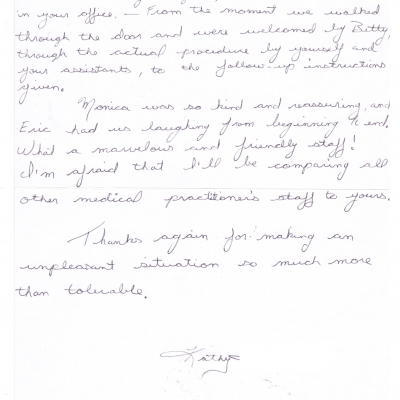 in your office. — From the moment we walked
through the door and were welcomed by Betty,
through the actual procedure by yourself and
your assistants, to the follow-up instructions
given.
Monica was so kind and reassuring, and
Eric had us laughing from beginning to end.
What a marvelous and friendly staff!
I'm afraid that I'll be comparing all
other medical practitioner's staff to yours.
Thanks again for making an
unpleasant situation so much more
than tolerable.
Kathy